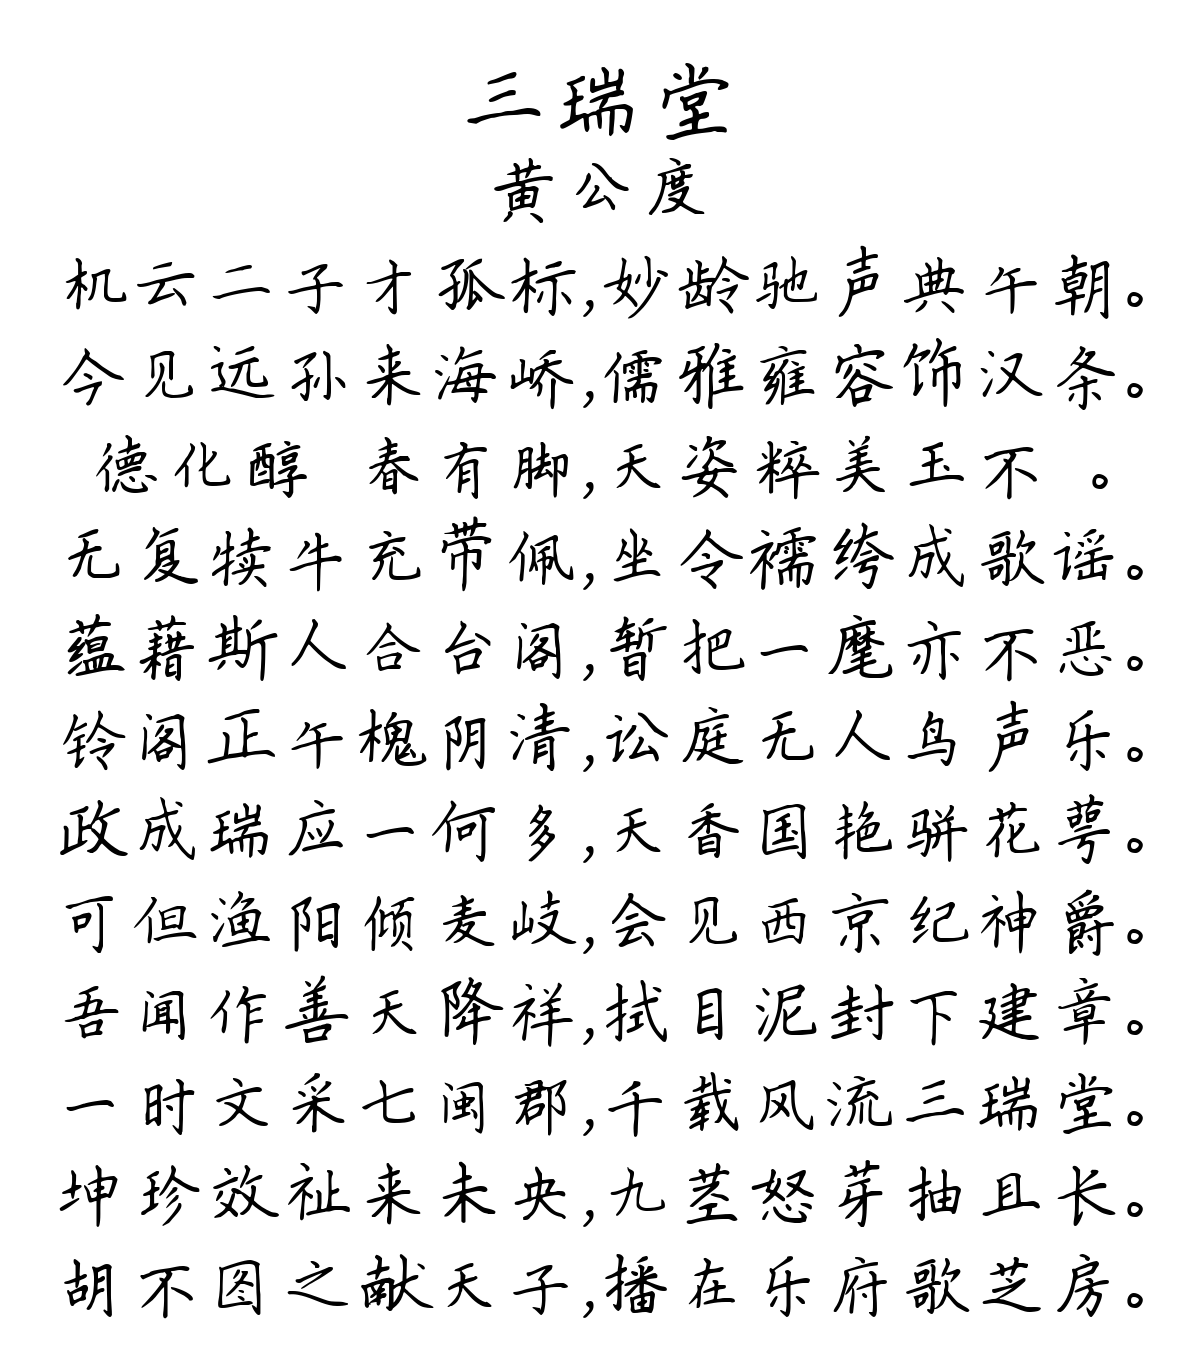 三瑞堂
黄公度
机云二子才孤标,妙龄驰声典午朝。
今见远孙来海峤,儒雅雍容饰汉条。
德化醇 春有脚,天姿粹美玉不 。
无复犊牛充带佩,坐令襦绔成歌谣。
蕴藉斯人合台阁,暂把一麾亦不恶。
铃阁正午槐阴清,讼庭无人鸟声乐。
政成瑞应一何多,天香国艳骈花萼。
可但渔阳倾麦岐,会见西京纪神爵。
吾闻作善天降祥,拭目泥封下建章。
一时文采七闽郡,千载风流三瑞堂。
坤珍效祉来未央,九茎怒芽抽且长。
胡不图之献天子,播在乐府歌芝房。